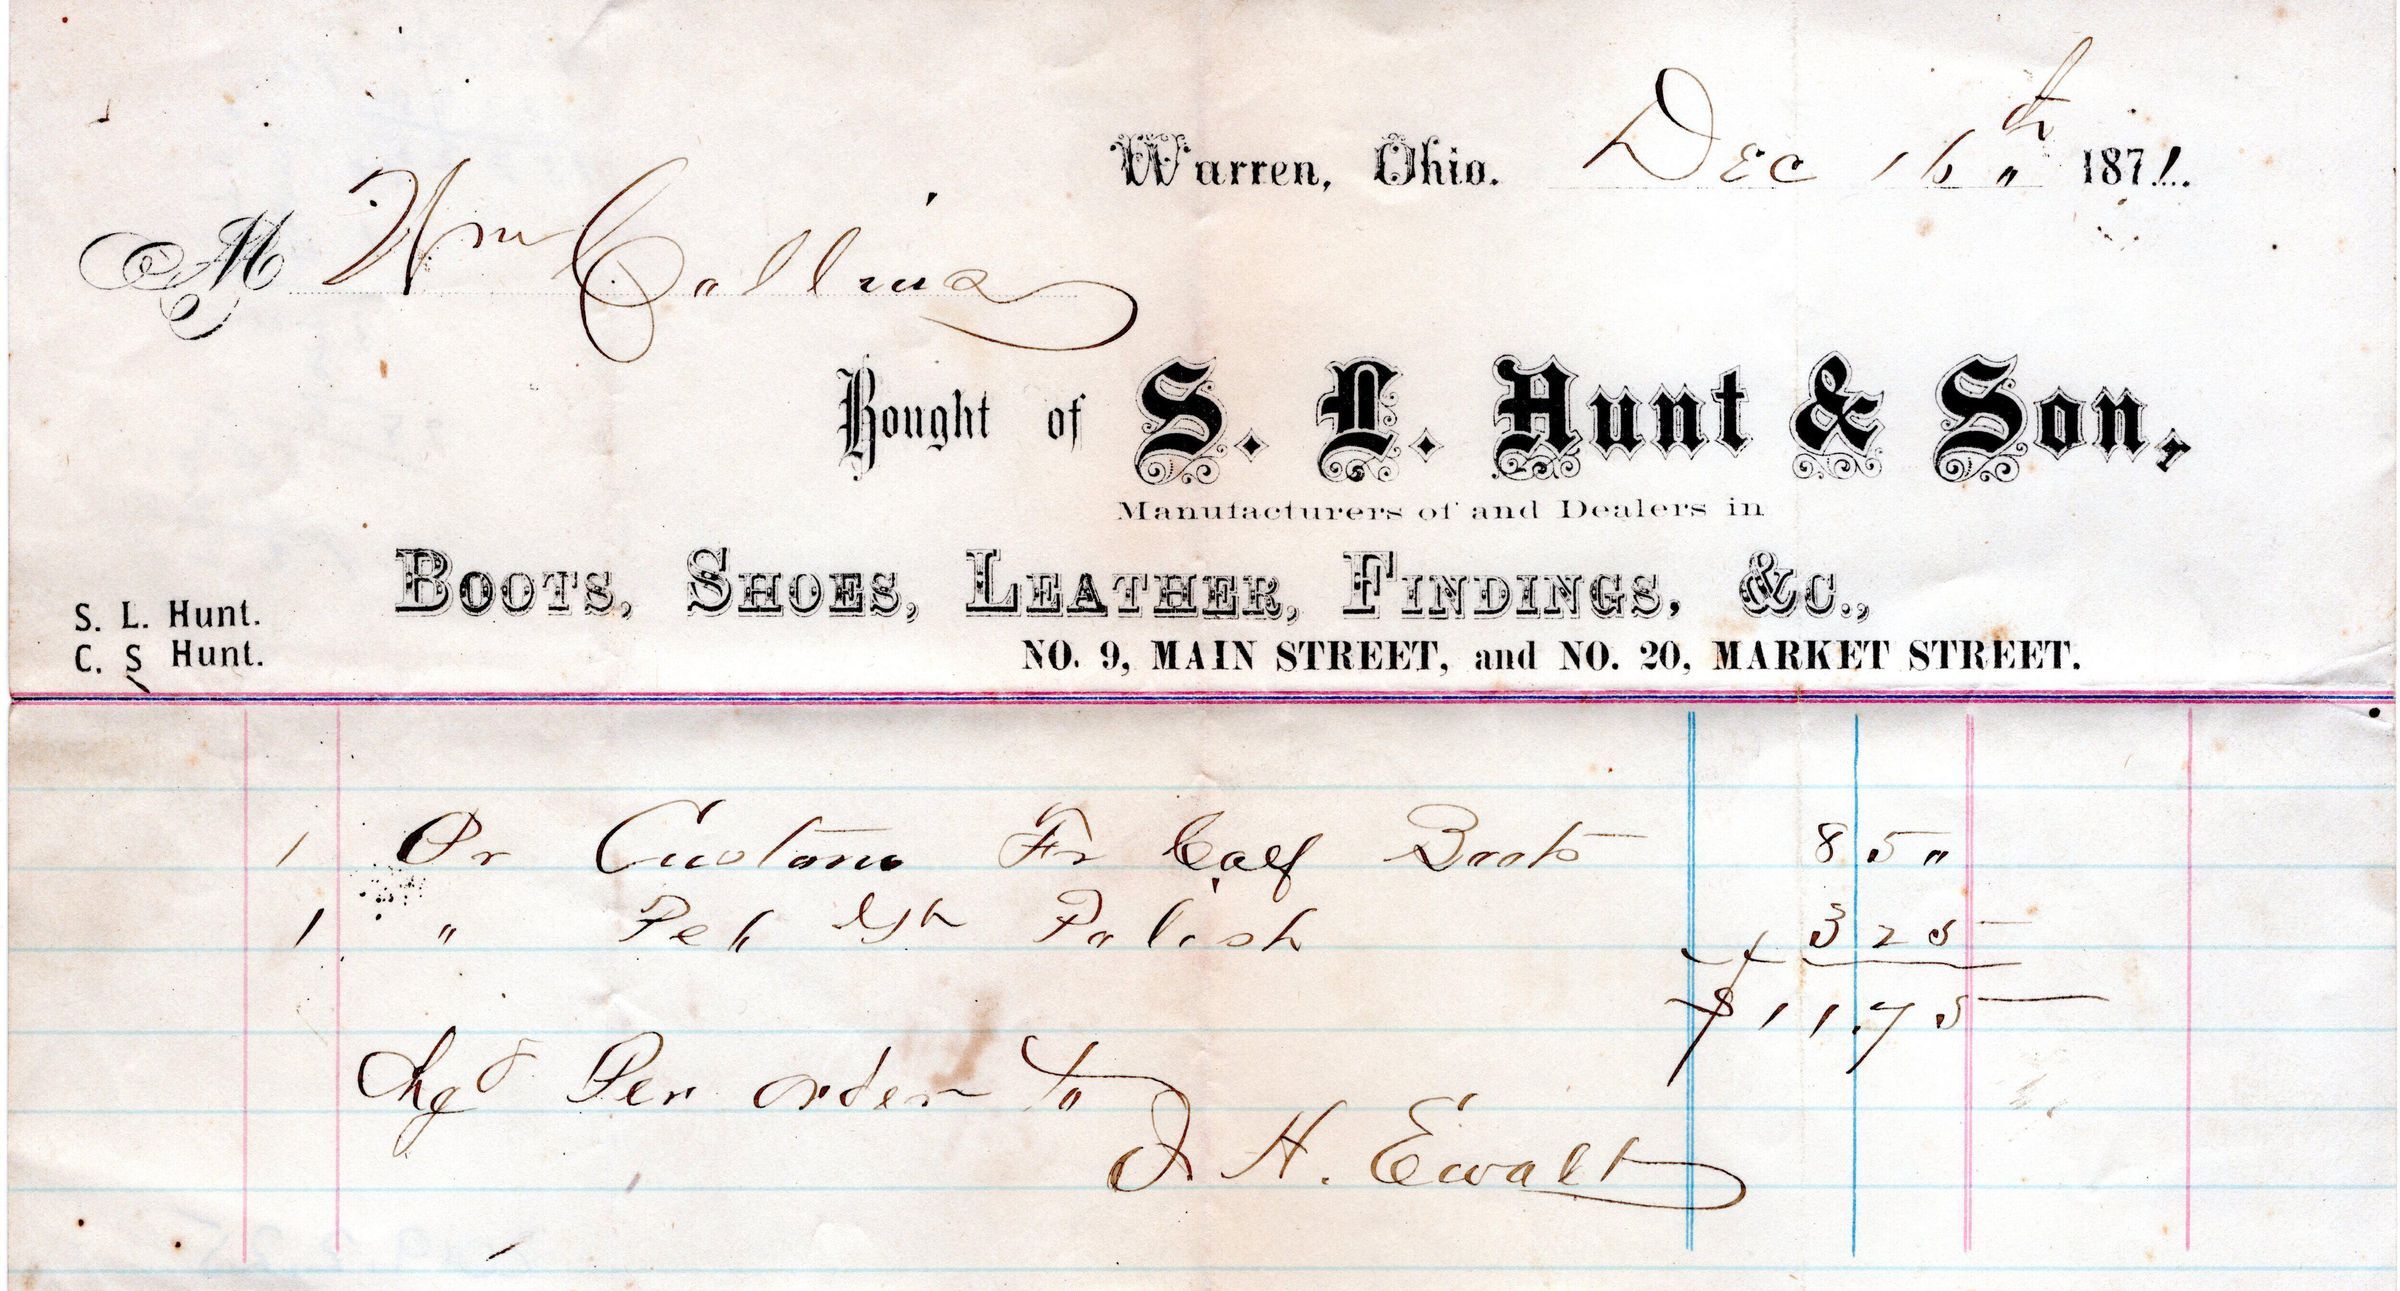 Warren, Ohio. Dec 16 " th 1871.
M Wm Collins
Bought of S. L. Hunt & Son,
Manufacturers of and Dealers in
Boots, Shoes, Leather, Findings, &c.,
S. L. Hunt.
C. S Hunt.
NO. 9, MAIN STREET, and NO. 20, MARKET STREET.
1 Pr Custom Fr Calf Boots 8 5"
1 " Peb Polish 3 25
$11.75
Chgd Per order to
J. H. Ewalt